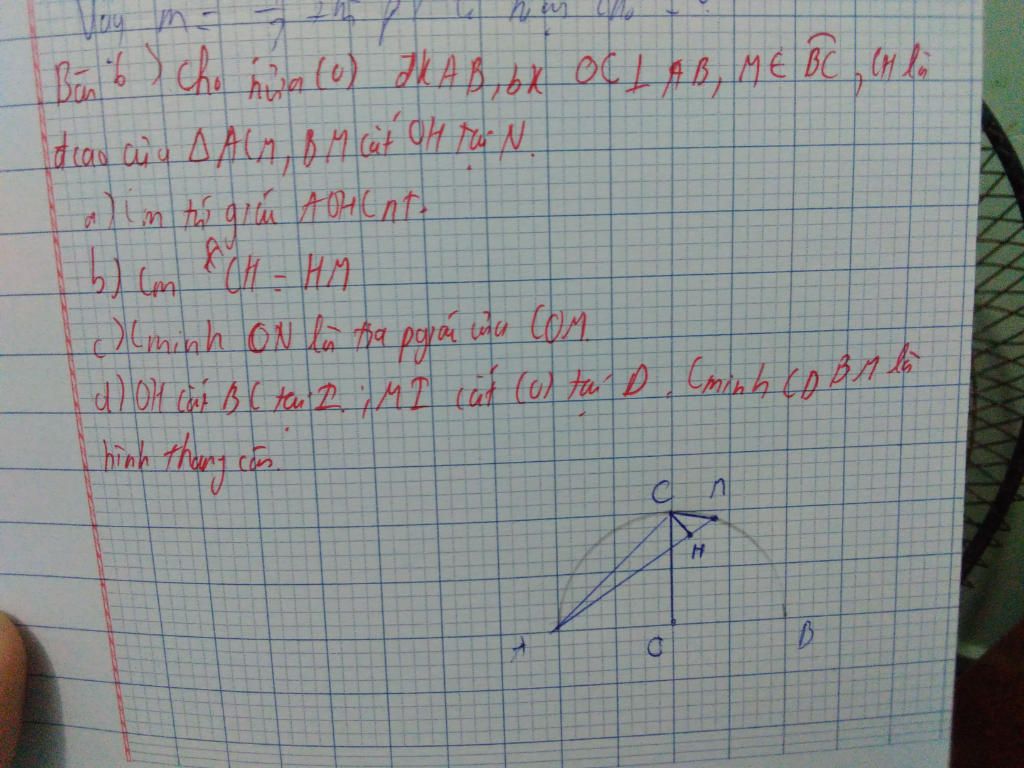 Vậy m =
Bài 6) Cho nửa (O) đkAB, bk OC⊥AB, M∈BC, CH là
đcao của ΔACM, BM cắt OH tại N.
a) Cm tứ giác AOHC nt.
b) Cm CH = HM
c) Cminh ON là tia pgiác của COM.
d) OH cắt BC tại I ; MI cắt (O) tại D. Cminh CDBM là
hình thang cân.
C M
H
A O B